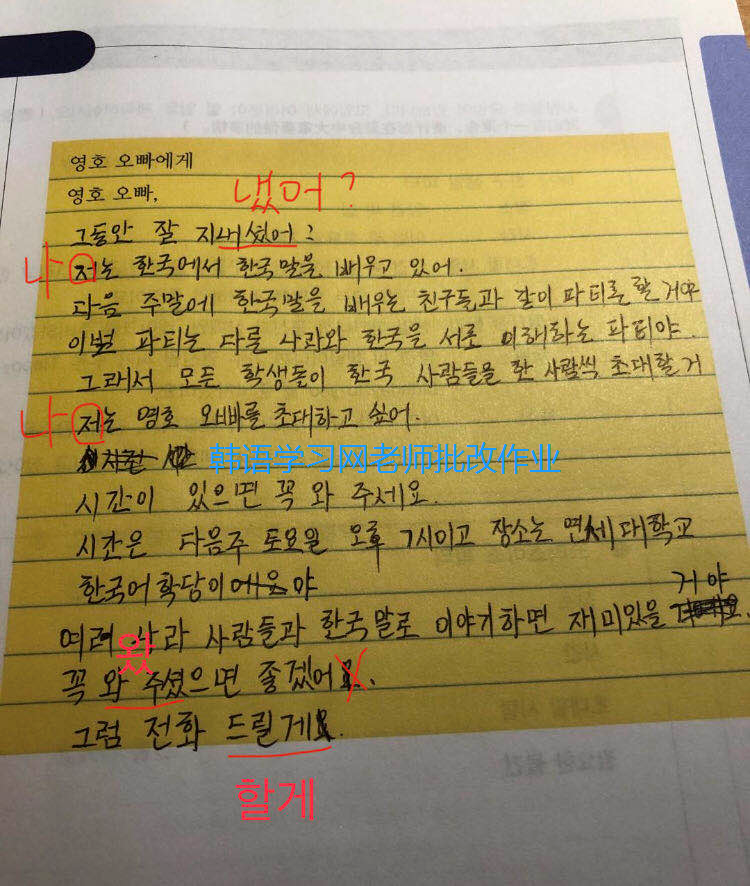 영호 오빠에게
영호 오빠,
냈어?
그동안 잘 지내셨어?
나
저는 한국에서 한국말을 배우고 있어.
다음 주말에 한국말을 배우는 친구들과 같이 파티를 할 거야
이번 파티는 다른 나라와 한국을 서로 이해하는 파티야.
그래서 모든 학생들이 한국 사람들을 한 사람씩 초대할 거
나
저는 영호 오빠를 초대하고 싶어.
韩语学习网老师批改作业
시간이 있으면 꼭 와 주세요.
시간은 다음주 토요일 오후 7시이고 장소는 연세대학교
한국어학당이야
거야
여러 나라 사람들과 한국말로 이야기하면 재미있을
왔
꼭 와 주셨으면 좋겠어요.
그럼 전화 드릴게요.
할게